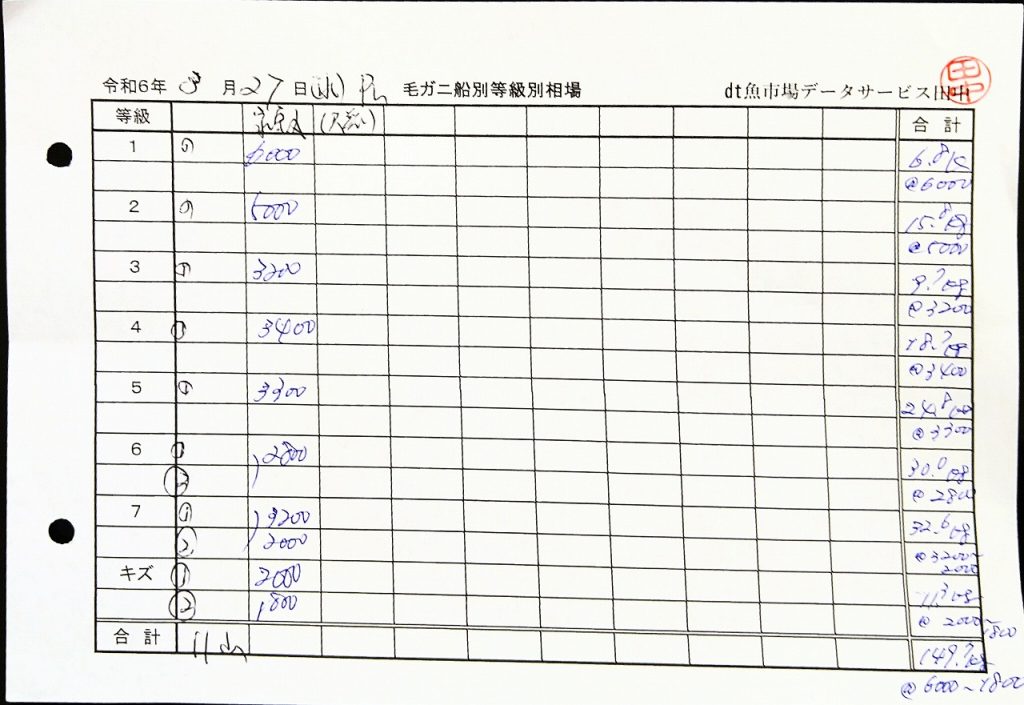 令和6年 3月27日(水) 毛ガニ船別等級別相場 dt魚市場データサービス田中
等級 合計
1 ① 6000 6.8K
@6000
2 ① 5000 15.8kg
@5000
3 ① 3200 9.7kg
@3200
4 ① 3400 18.7kg
@3400
5 ① 3300 24.8kg
@3300
6 ① 2800 30.0kg
② @2800
7 ① 3200 32.6kg
② 2000 @3200~2000
キズ ① 2000 11.3kg
② 1800 @2000~1800
合計 11山 149.7kg
@6000~1800